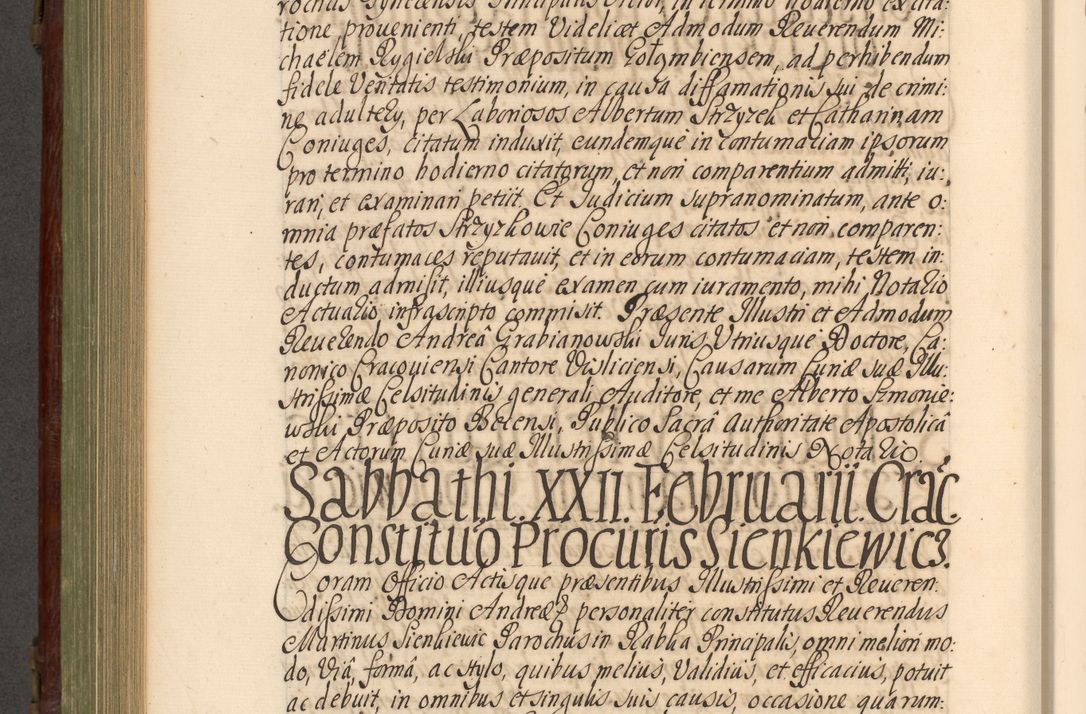 rochus Gynecensis Principalis Actor, in termino hodierno ex cita:
tione, provenienti, testem Videlicæt Admodum Reverendum Mi:
chaelem Rygielski Præpositum Gołąmbiensem, ad perhibendum
fidele Veritatis testimonium, in causa diffamationis sui de crimi:
ne adultery, per Laboriosos Albertum Strzyzek et Catharinam
Coniuges, citatum induxit, eundemque in contumaciam ipsorum
pro termino hodierno citatorum, et non comparentium admitti, iu:
rari, et examinari petiit. Et Judicium supranominatum, ante o:
mnia præfatos Strzyzkowie Coniuges citatos et non comparen:
tes, contumaces reputavit, et in eorum contumaciam, testem in:
ductum admisit, illiusque examen cum iuramento, mihi Notario
Actuario infrascripto commisit. Præsente Illustri et Admodum
Reverendo Andreâ Grabianowski Juris Utriusque Doctore, Ca:
nonico Cracoviensi Cantore Visliciensi, Causarum Curiæ suæ Illu:
strissimæ Celsitudinis generali Auditore, et me Alberto Szmonie:
wski Præposito Bocensi, Publico Sacrâ Authoritate Apostolicâ
et Actorum Curiæ suæ Illustrissimæ Celsitudinis Notario.
Sabbathi. XXII. Februarii. Crac.
Constituo Procuris Sienkiewicz.
Coram Officio Actisque præsentibus Illustrissimi et Reveren:
dissimi Domini Andreæ personaliter constitutus Reverendus
Martinus Sienkievic Parochus in Rabka Principalis, omni meliori mo:
do, Viâ, formâ, ac stylo, quibus melius, Validius, et efficacius, potuit
ac debuit, in omnibus et singulis suis causis, occasione quarum: